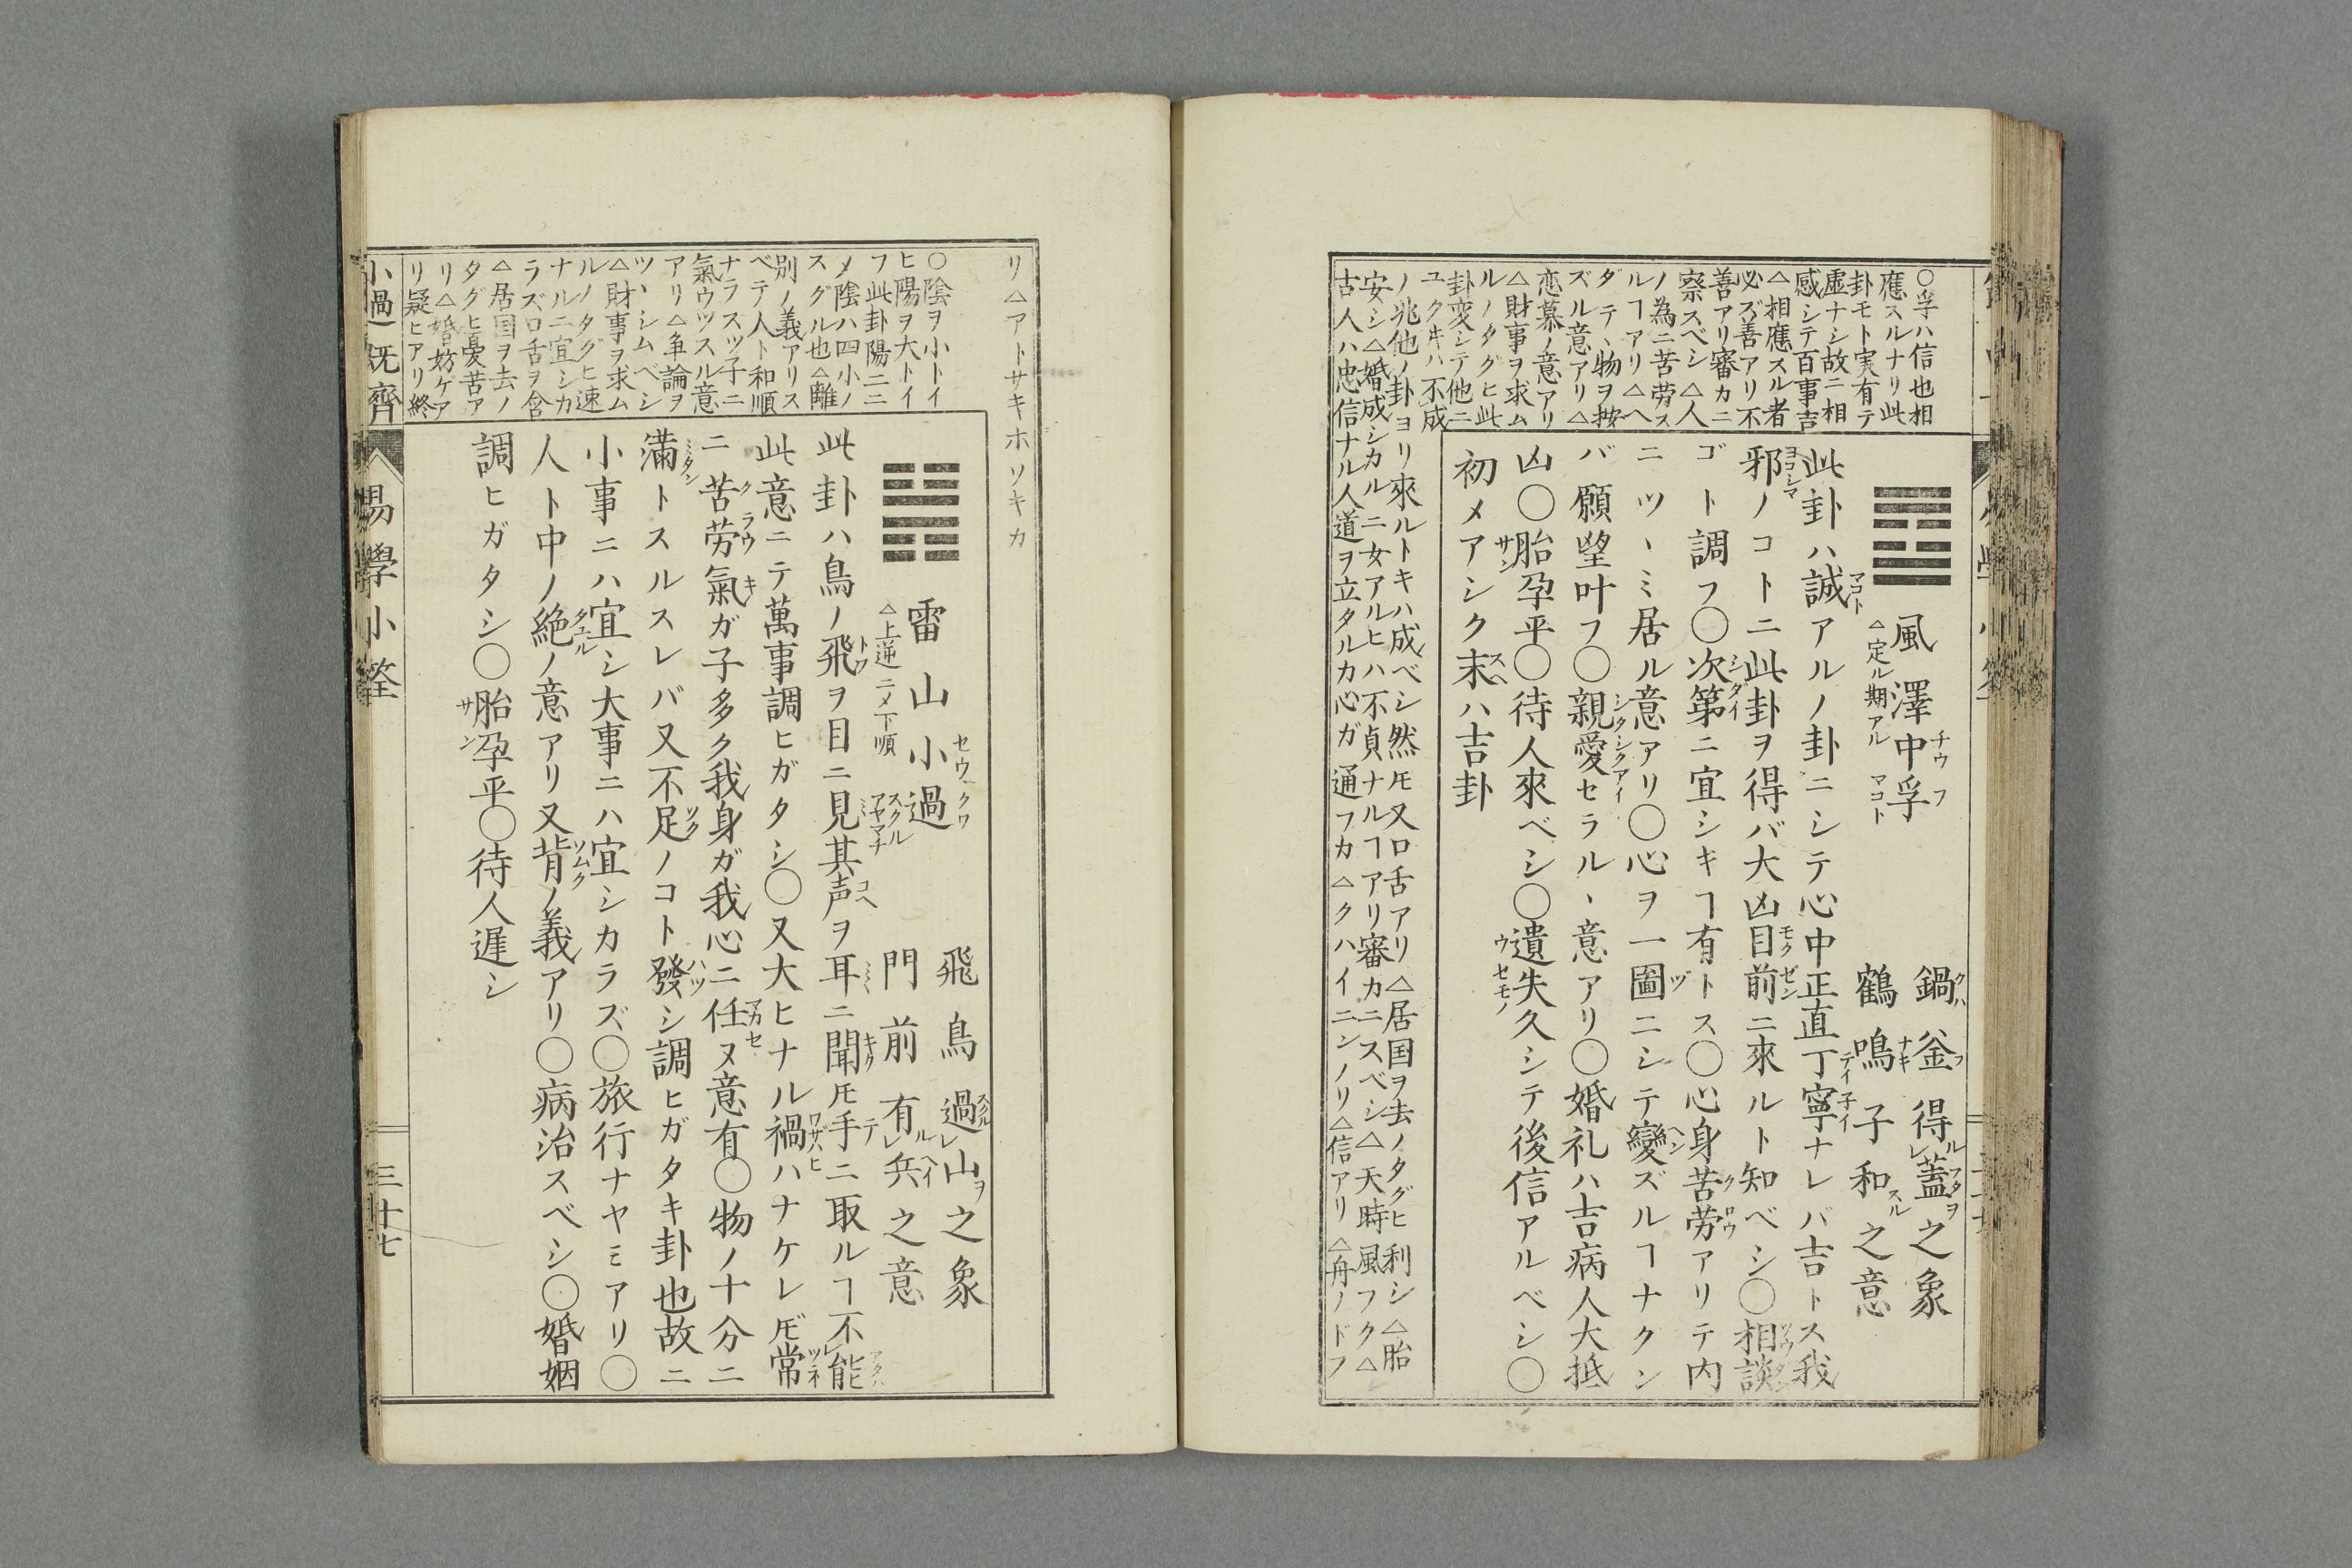 風澤中孚
チウフ
△定ル期アル　マコト
鍋釜得レ蓋之象
クハフルフタヲ
鶴鳴子和之意
ナキスル
此卦ハ誠アルノ卦ニシテ心中正直丁寧ナレバ吉トス我
邪ノコトニ此卦ヲ得バ大凶目前ニ來ルト知ベシ〇相談
ゴト調フ〇次第ニ宜シキヿ有トス〇心身苦労アリテ内
ニツヽミ居ル意アリ〇心ヲ一圖ニシテ變ズルヿナクン
バ願望叶フ〇親愛セラルヽ意アリ〇婚礼ハ吉病人大抵
凶〇胎孕平〇待人來ベシ〇遺失久シテ後信アルベシ〇
初メアシク末ハ吉卦
〇孚ハ信也相
應スルナリ此
卦モト実有テ
虚ナシ故ニ相
感シテ百事吉
△相應スル者
必ズ善アリ不
善アリ審カニ
察スベシ△人
ノ為ニ苦労ス
ルヿアリ△ヘ
ダテヽ物ヲ按
ズル意アリ△
恋慕ノ意アリ
△財事ヲ求ム
ルノタグヒ此
卦変シテ他ニ
ユクキハ不成
ノ兆他ノ卦ヨリ來ルトキハ成ベシ然ドモ又口舌アリ△居国ヲ去ノタグヒ利シ△胎
安シ△婚成シカルニ女アルヒハ不貞ナルヿアリ審カニスベシ△天時風フク△
古人ハ忠信ナル人道ヲ立タルカ心ガ通フカ△クハイニンノリ△信アリ△舟ノドフ
リ△アトサキホソキカ
雷山小過
セウクワ
△上逆ニメ下順
スクル
アヤマチ
飛鳥過レ山之象
スクルヲ
門前有レ兵之意
ルヘイ
此卦ハ鳥ノ飛ヲ目ニ見其声ヲ耳ニ聞𪜈手ニ取ルヿ不レ能
此意ニテ萬事調ヒガタシ〇又大ヒナル禍ハナケレ𪜈常
ニ苦労氣ガ子多ク我身ガ我心ニ任ヌ意有〇物ノ十分ニ
滿トスルスレバ又不足ノコト發シ調ヒガタキ卦也故ニ
小事ニハ宜シ大事ニハ宜シカラズ〇旅行ナヤミアリ〇
人ト中ノ絶ノ意アリ又背ノ義アリ〇病治スベシ〇婚姻
調ヒガタシ〇胎孕平〇待人遅シ
〇陰ヲ小トイ
ヒ陽ヲ大トイ
フ此卦陽二ニ
メ陰ハ四小ノ
スグル也△離
別ノ義アリス
ベテ人ト和順
ナラスツ子ニ
氣ウツスル意
アリ△争論ヲ
ツヽシムベシ
△財事ヲ求ム
ルノタグヒ速
ナルニ宜シカ
ラズ口舌ヲ含
△居国ヲ去ノ
タグヒ憂苦ア
リ△婚妨ゲア
リ疑ヒアリ終
小過　既齊
易學小筌
三十七